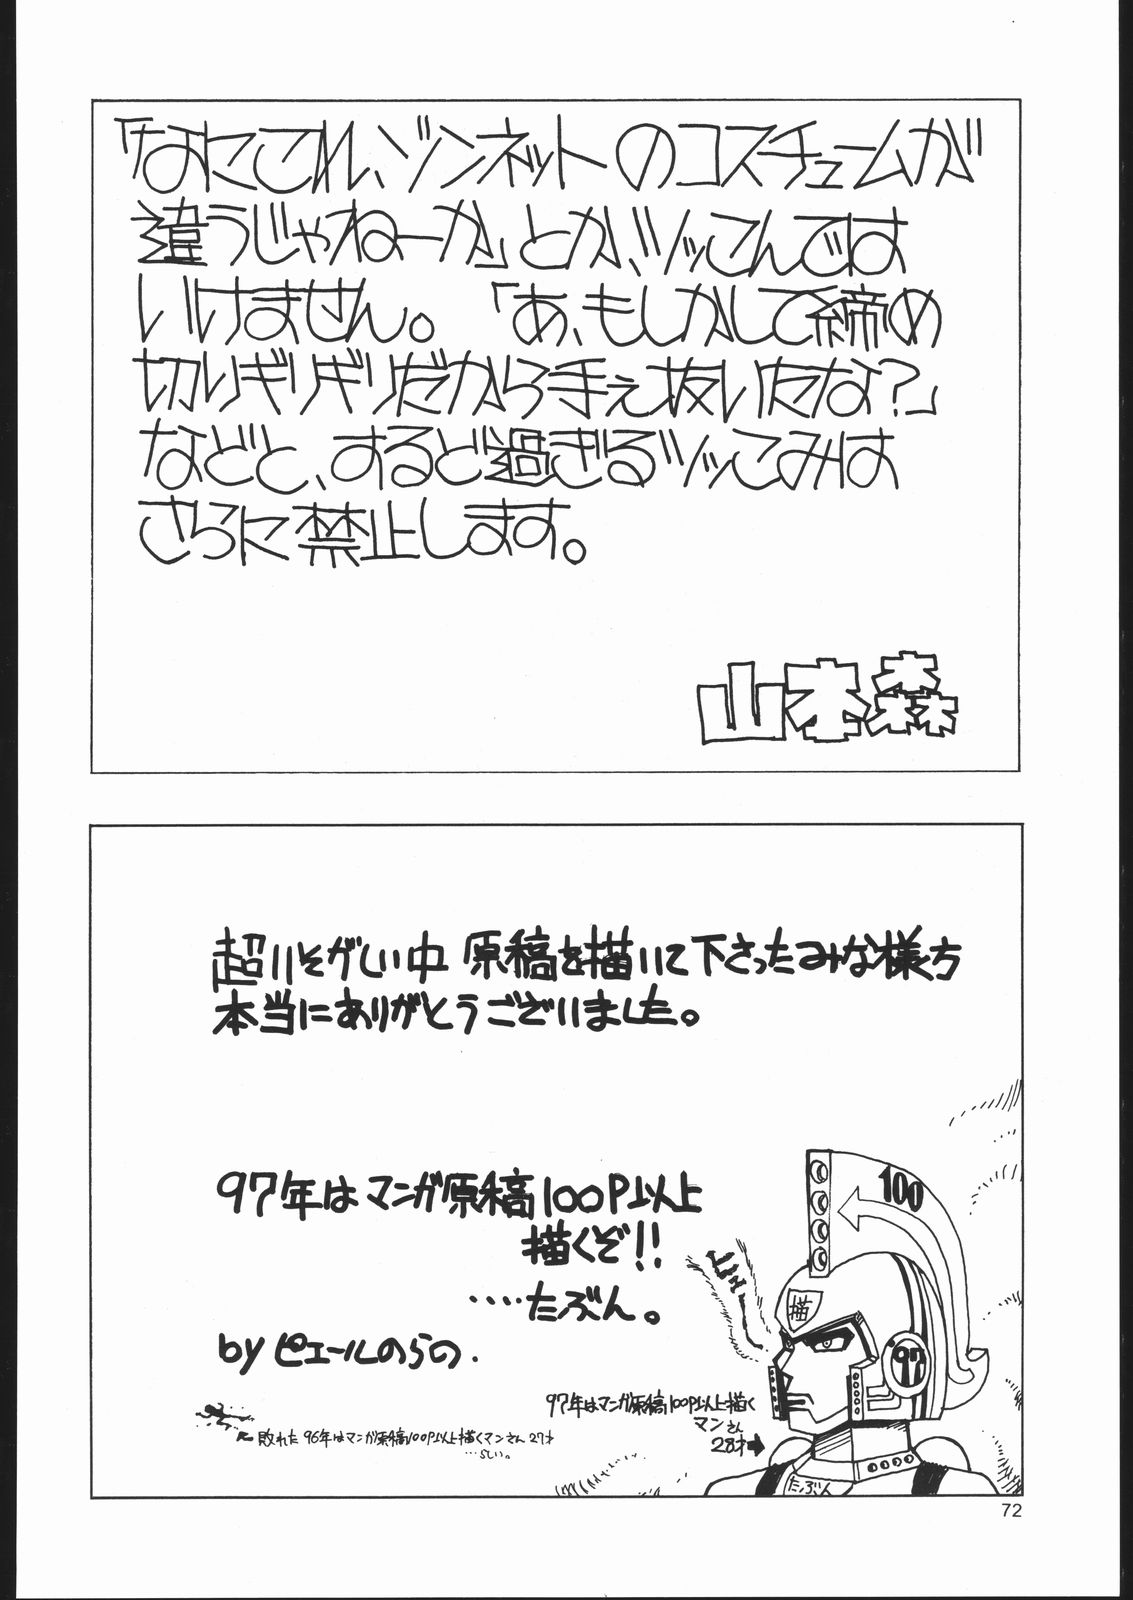 「なにこれ、ゾンネットのコスチュームが
違うじゃねーか」とか、ツッこんでは
いけません。「あ、もしかして締め
切りギリギリだから手ぇ抜いたな?」
などと、するど過ぎるツッこみは
さらに禁止します。
山本森
超いそがしい中 原稿を描いて下さったみな様方
本当にありがとうございました。
97年はマンガ原稿100P以上
描くぞ!!
‥‥たぶん。
by ピエールのらの.
100
描
'97
97年はマンガ原稿100P以上描く
マンさん
28才
敗れた 96年はマンガ原稿100P以上描くマンさん 27才
…らしい。
たぶん
72